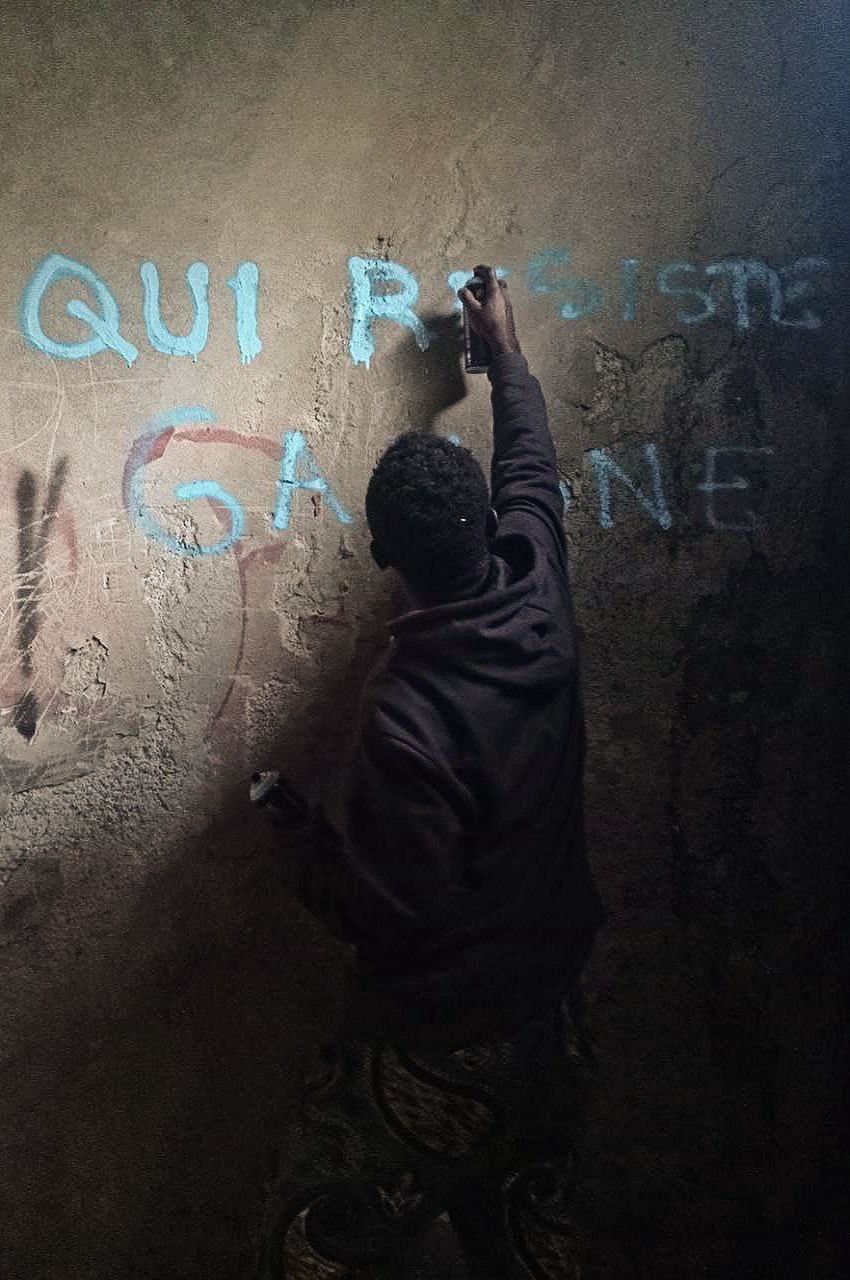 QUI RESISTE
GAGNE